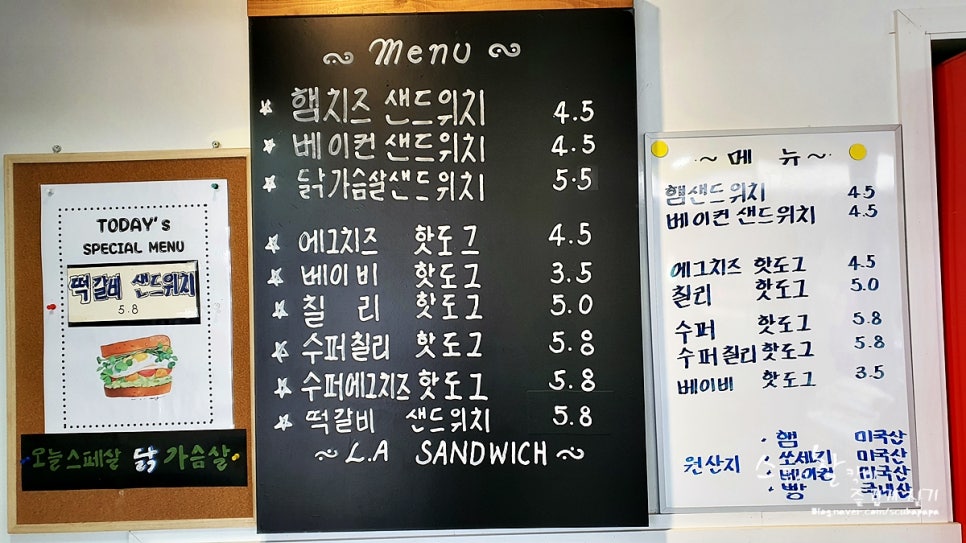 TODAY's
SPECIAL MENU
떡갈비 샌드위치
5.8
오늘스페샬 닭가슴살
~ Menu ~
☆ 햄치즈 샌드위치 4.5
☆ 베이컨 샌드위치 4.5
☆ 닭가슴살샌드위치 5.5
☆ 에그치즈 핫도그 4.5
☆ 베이비 핫도그 3.5
☆ 칠리 핫도그 5.0
☆ 수퍼칠리 핫도그 5.8
☆ 수퍼에그치즈핫도그 5.8
☆ 떡갈비 샌드위치 5.8
~ L.A SANDWICH ~
~ 메뉴 ~
햄샌드위치 4.5
베이컨샌드위치 4.5
에그치즈 핫도그 4.5
칠리 핫도그 5.0
수퍼 핫도그 5.8
수퍼칠리핫도그 5.8
베이비 핫도그 3.5
원산지
· 햄 미국산
· 쏘세지 미국산
· 베이컨 미국산
· 빵 국내산
Blog.naver.com/scubapapa